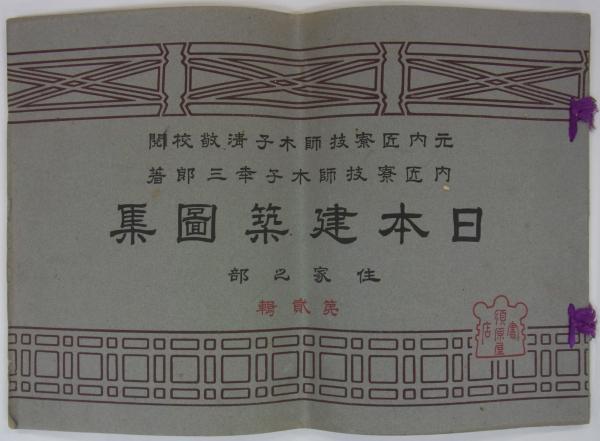 元内匠寮技師木子清敬校閲
内匠寮技師木子幸三郎著
日本建築圖集
住家之部
第貳輯
須原屋書店